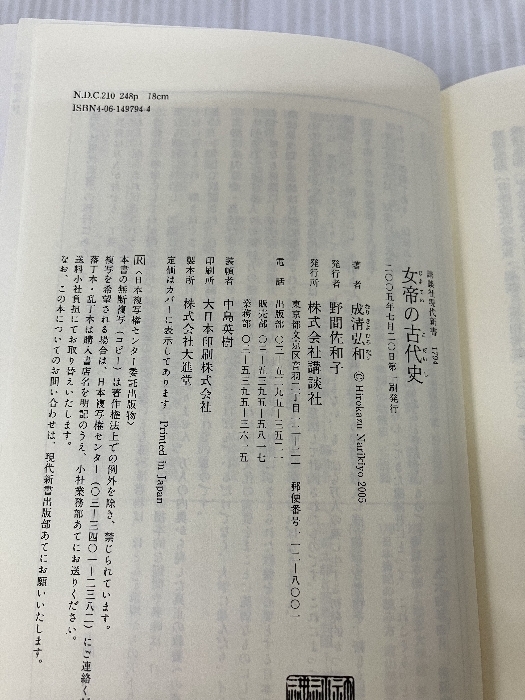 N.D.C.210 248p 18cm
ISBN4-06-149794-4
講談社現代新書 1794
女帝の古代史
二〇〇五年七月二〇日第一刷発行
著者 成清弘和 ©Hirokazu Narikiyo 2005
発行者 野間佐和子
発行所 株式会社講談社
東京都文京区音羽二丁目一二—二一 郵便番号一一二—八〇〇一
電話 出版部 〇三—五三九五—三五二一
販売部 〇三—五三九五—五八一七
業務部 〇三—五三九五—三六一五
装幀者 中島英樹
印刷所 大日本印刷株式会社
製本所 株式会社大進堂
定価はカバーに表示してあります Printed in Japan
R〈日本複写権センター委託出版物〉
本書の無断複写(コピー)は著作権法上での例外を除き、禁じられています。
複写を希望される場合は、日本複写権センター(〇三—三四〇一—二三八二)にご連絡く
落丁本・乱丁本は購入書店名を明記のうえ、小社業務部あてにお送りください。
送料小社負担にてお取り替えいたします。
なお、この本についてのお問い合わせは、現代新書出版部あてにお願いいたします。